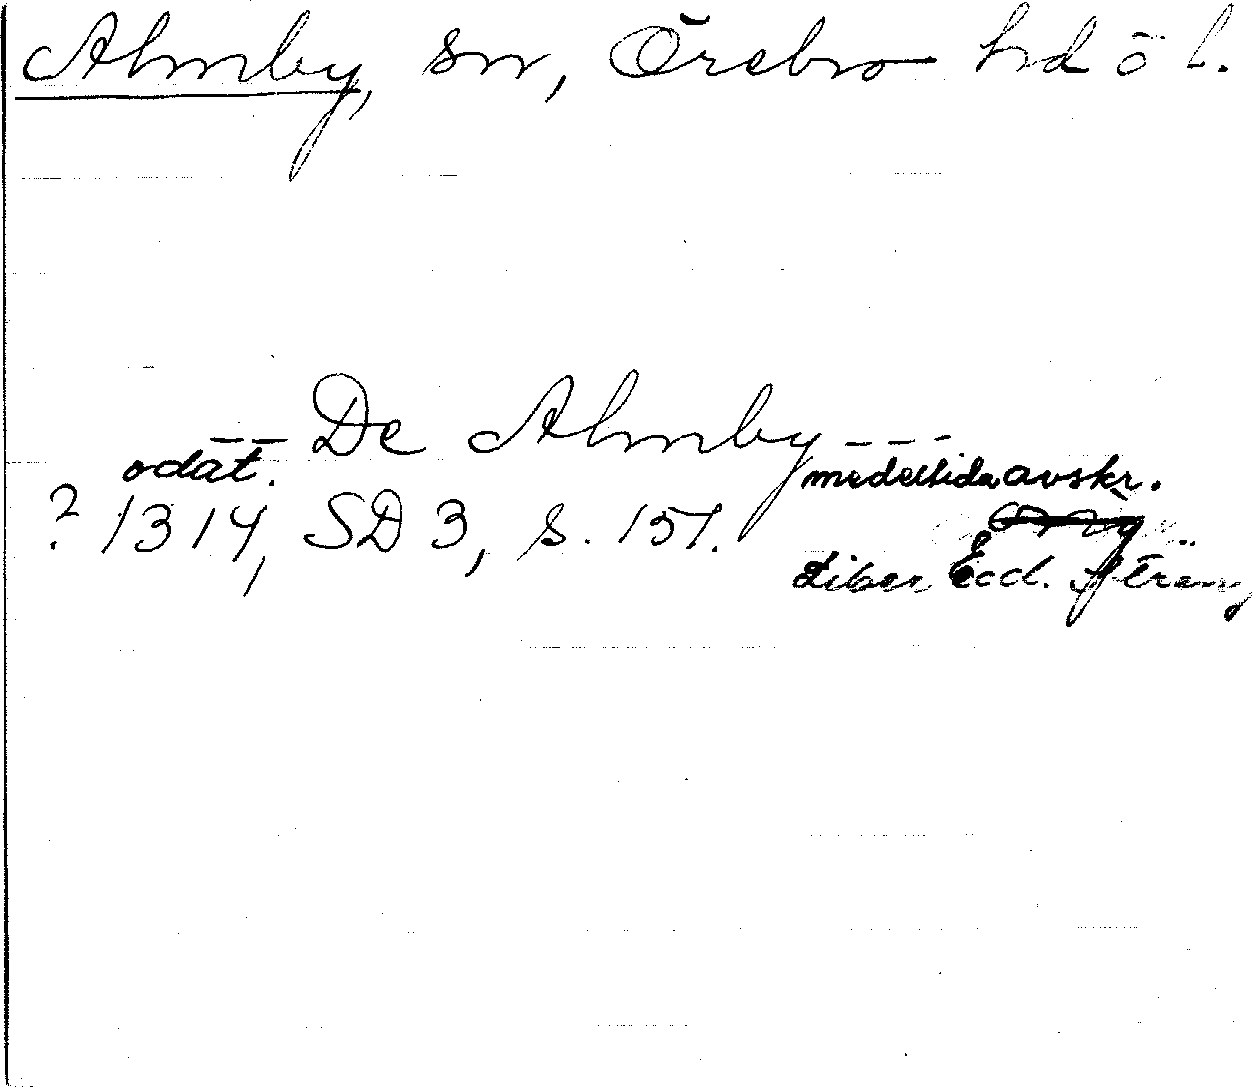 Almby, sn, Örebro hd ö l.
-- De Almby ---
odat. medeltida avskr.
? 1314, SD 3, s. 151.
Liber Eccl. Sträng